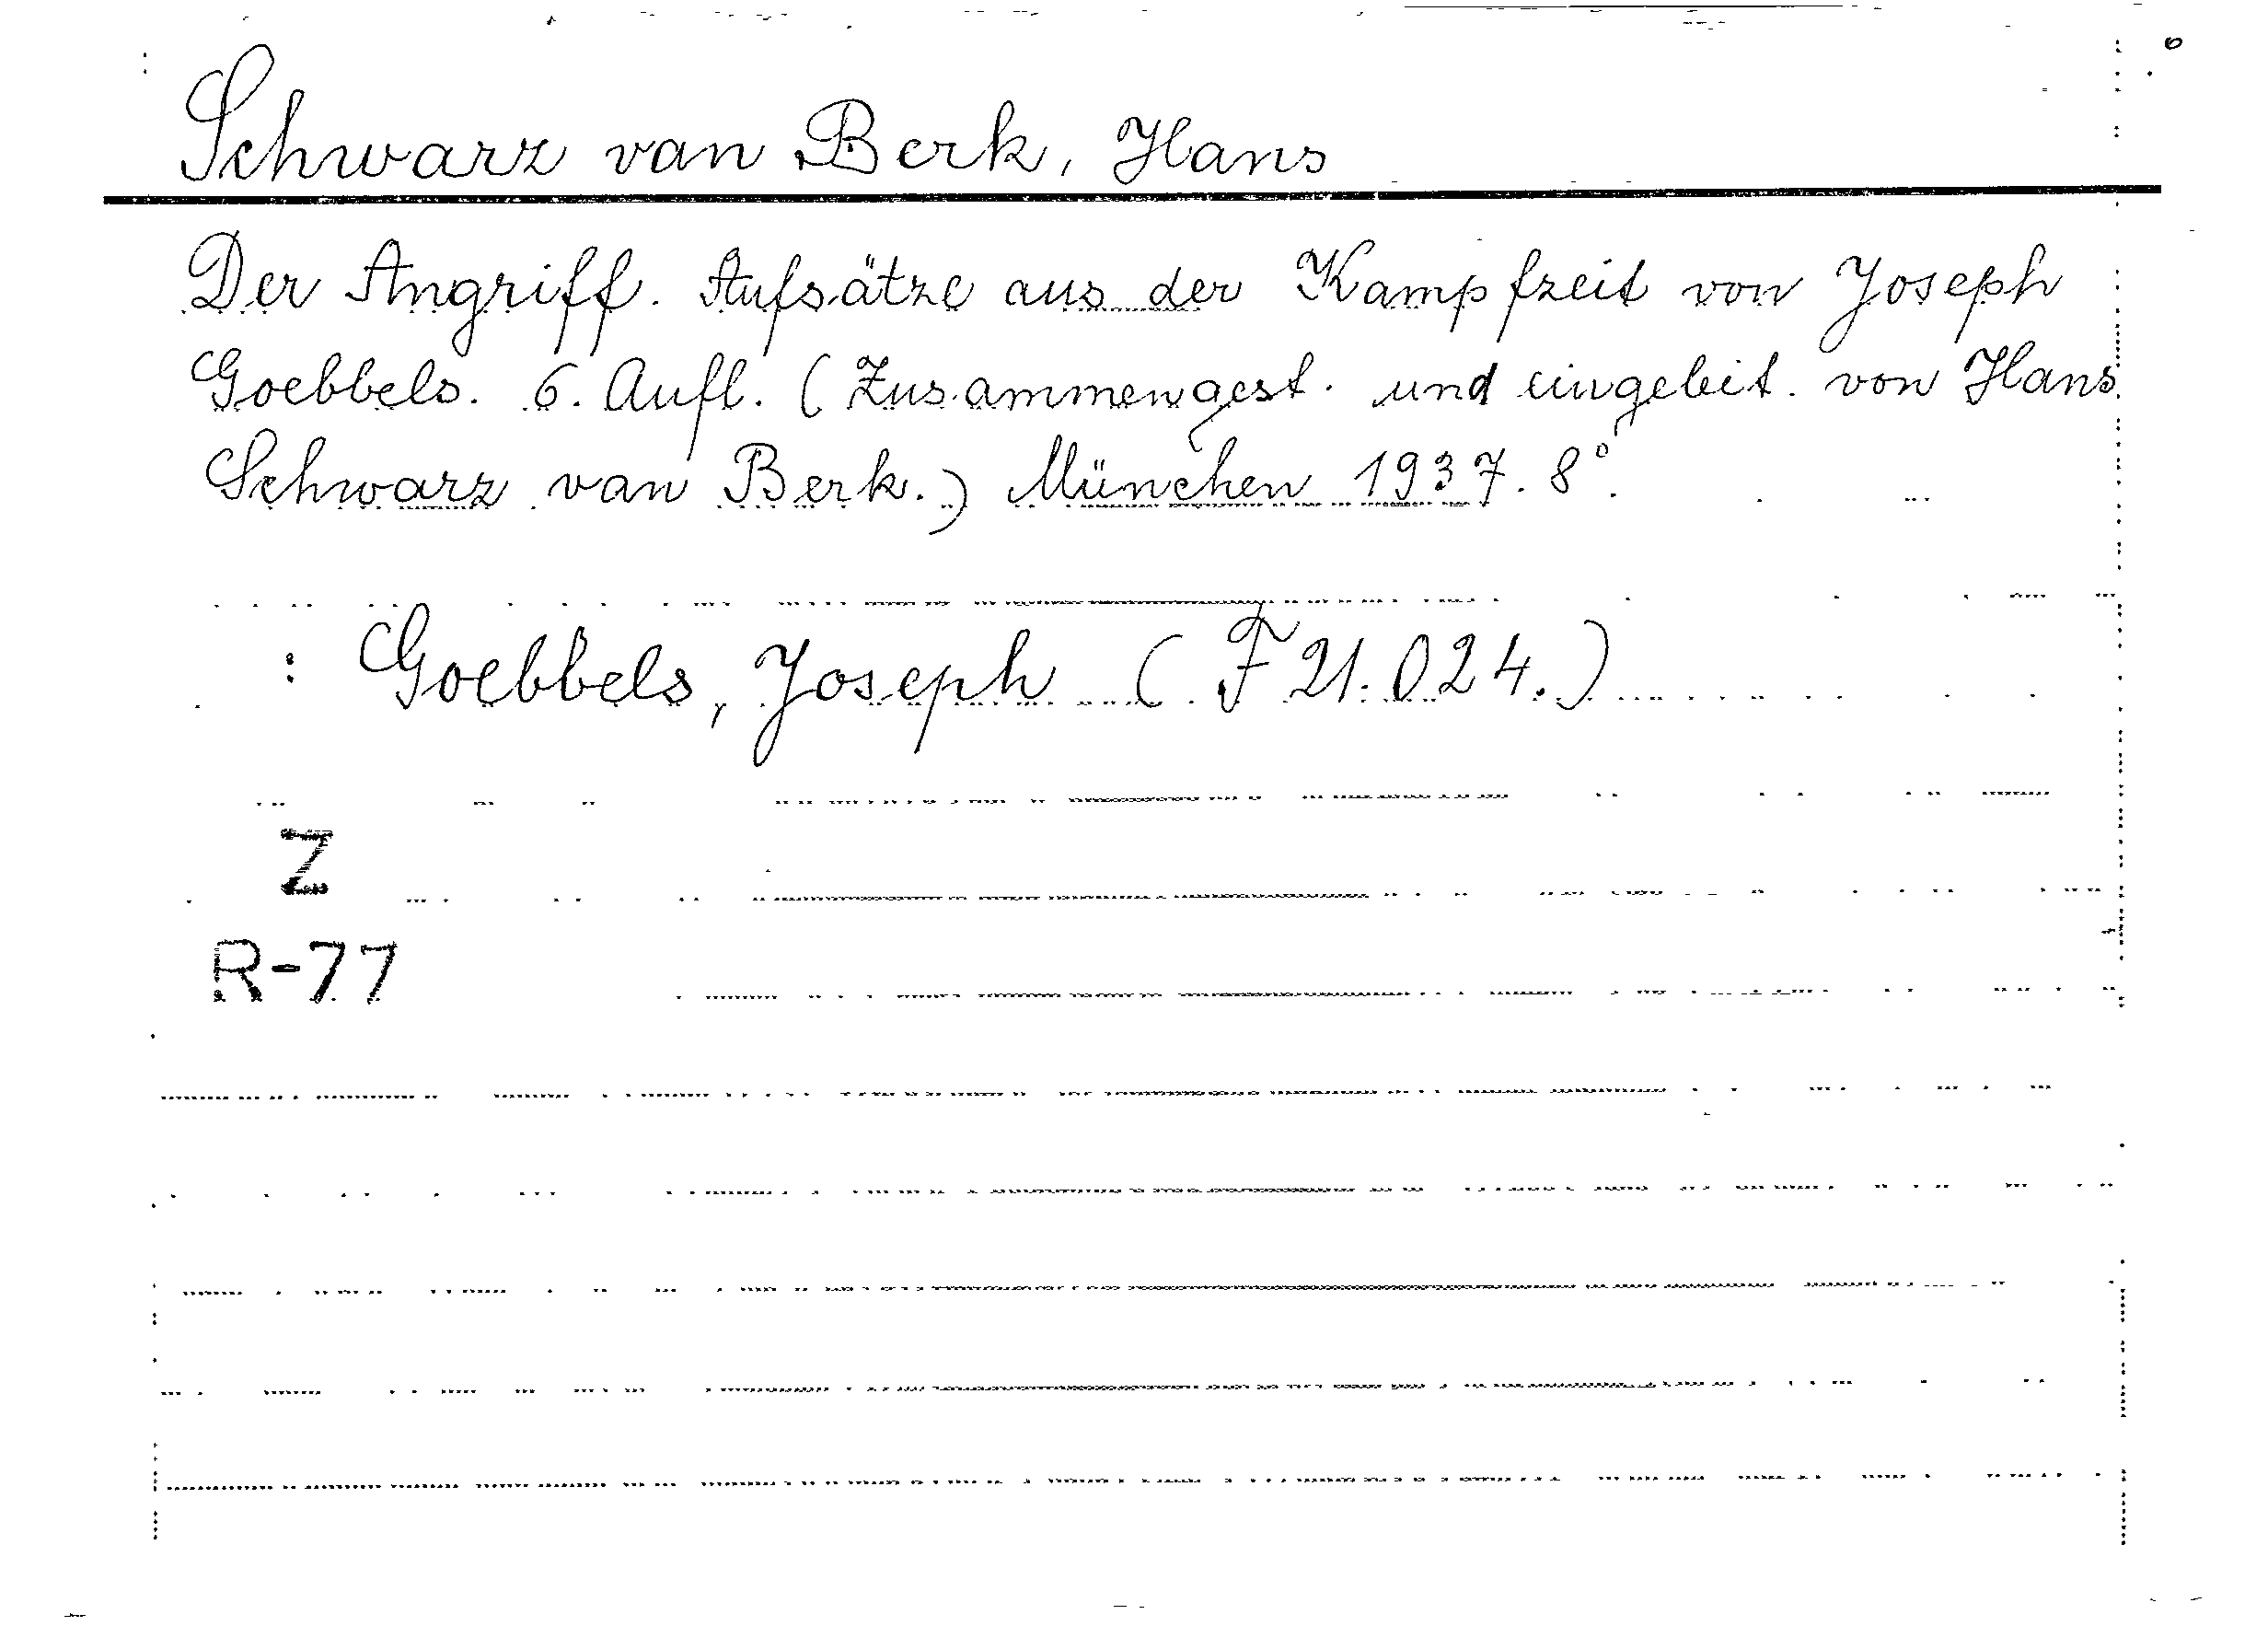 Schwarz van Berk, Hans
Der Angriff. Aufsätze aus der Kampfzeit von Joseph
Goebbels. 6. Aufl. (Zusammengest. und eingeleit. von Hans
Schwarz van Berk.) München 1937. 8°.
: Goebbels, Joseph (F 21.024.)
Z
R-77